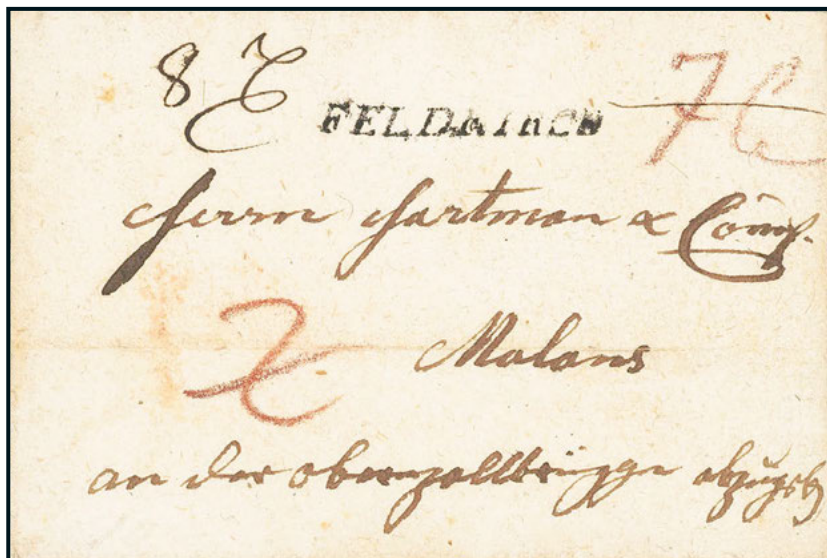 8
FELDKIRCH
7
Herrn Hartman & Comp.
Malans
an der oberzollbrügge abzugeben